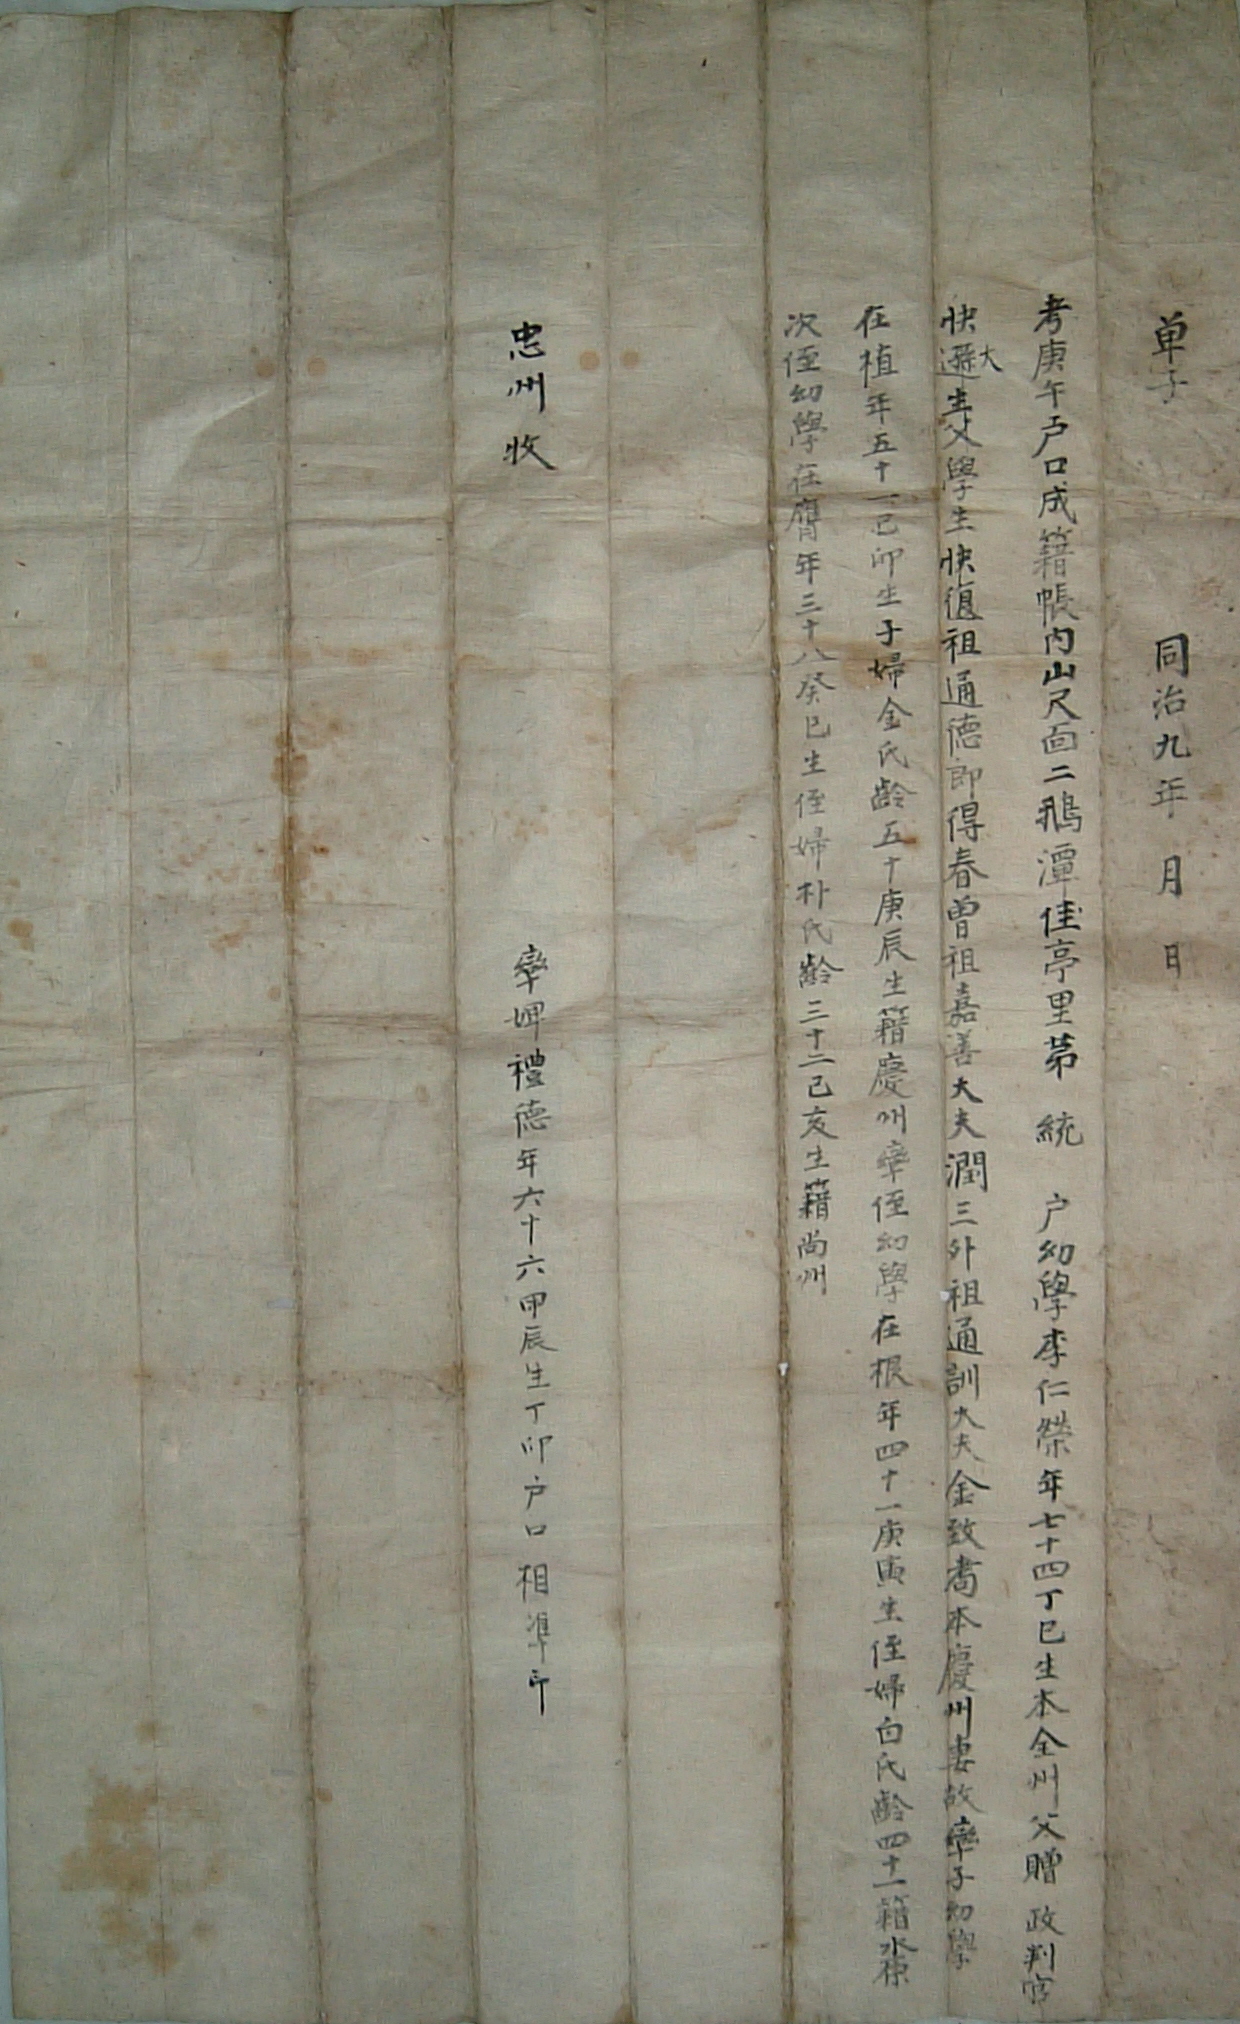 單子 同治九年 月 日
考庚午戶口成籍帳內山尺面二鵝潭佳亭里第 統 戶幼學李仁榮年七十四丁巳生本全州父贈 政判官
快遜大生父學生快復祖通德郎得春曾祖嘉善大夫潤三外祖通訓大夫金致喬本慶州妻故率子幼學
在植年五十一己卯生子婦金氏齡五十庚辰生籍慶州率侄幼學在根年四十一庚寅生侄婦白氏齡四十一籍水原
次侄幼學在膺年三十八癸巳生侄婦朴氏齡三十二己亥生籍尙州
忠州 收 率婢禮德年六十六甲辰生丁卯戶口相準印